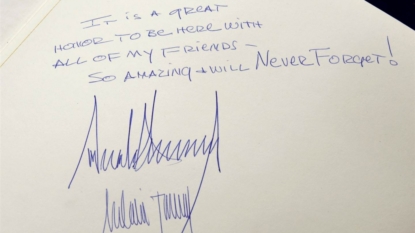 IT IS A GREAT
HONOR TO BE HERE WITH
ALL OF MY FRIENDS -
SO AMAZING + WILL NEVER FORGET!
Melania Trump